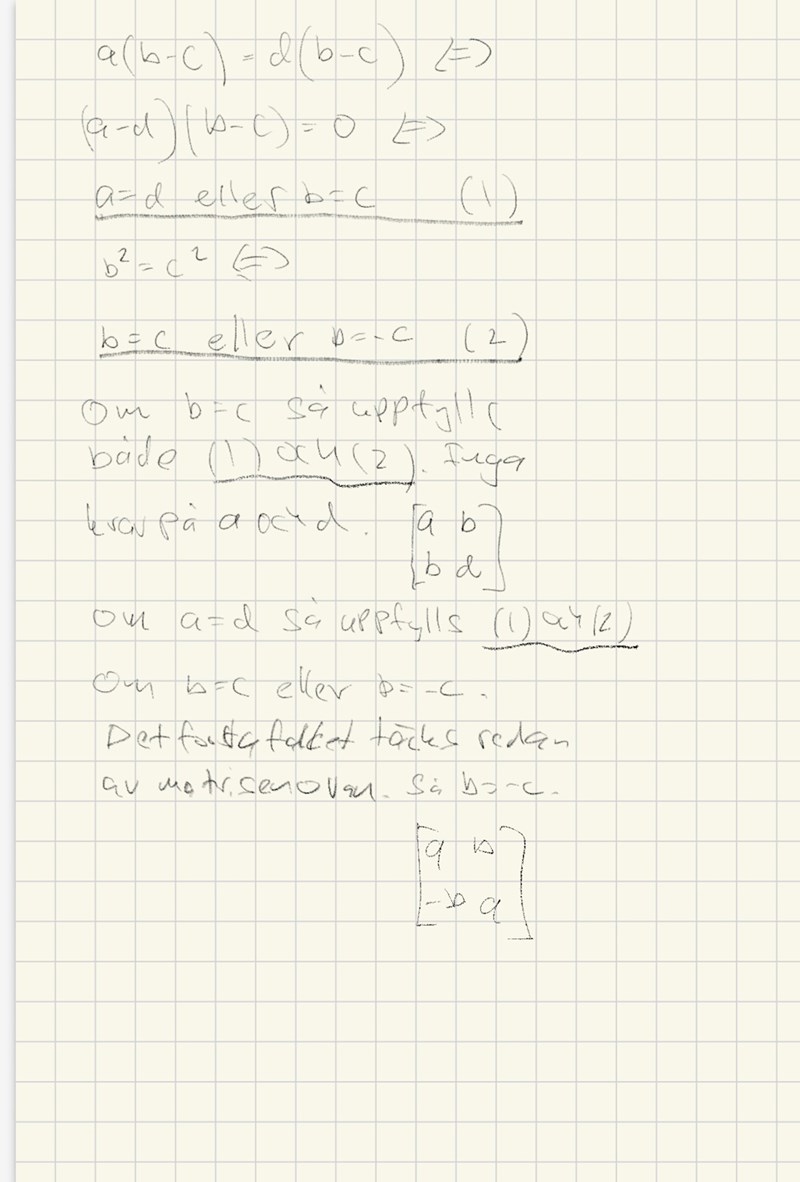 a(b-c) = d(b-c) <=>
(a-d)(b-c) = 0 <=>
a=d eller b=c (1)
b² = c² <=>
b=c eller b=-c (2)
Om b=c så uppfylls
både (1) och (2). Inga
krav på a och d. [a b
b d]
Om a=d så uppfylls (1) och (2)
Om b=c eller b=-c.
Det första fallet täcks redan
av matrisen ovan. Så b=-c.
[a b
-b a]